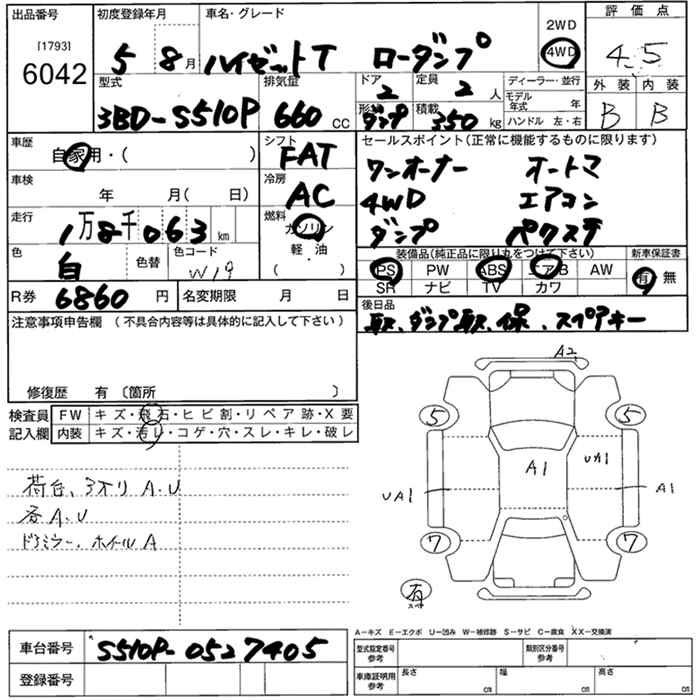 出品番号 初度登録年月 車名・グレード 2WD 評価点
[1793] 6042 5 8月 ハイゼットT ローダンプ 4WD 4.5
型式 排気量 ドア 定員 ディーラー・並行 外装 内装
3BD-S510P 660 CC 2 2人 モデル年式 年 B B
形状 ダンプ 積載 350 kg ハンドル 左・右
車歴 自家用・( ) シフト FAT セールスポイント(正常に機能するものに限ります)
ワンオーナー オートマ
車検 年 月( 日) 冷房 AC 4WD エアコン
走行 1万8千063km 燃料 ガソリン ダンプ パワステ
色 白 色替 色コード W19 軽・油 ( )
装備品(純正品に限り丸をつけて下さい) 新車保証書
PS PW ABS エアB AW 有・無
SR ナビ TV カワ
R券 6860円 名変期限 月 日 後日品
取、ダンプ取、保、スペアキー
注意事項申告欄 (不具合内容等は具体的に記入して下さい)
修復歴 有 〔箇所 〕
検査員 FW キズ・飛石・ヒビ割・リペア跡・X要
記入欄 内装 キズ・汚レ・コゲ・穴・スレ・キレ・破レ
荷台、3方リ A.U
各A.U
ドアミラー、ホイールA
A2
5 5
A1 UA1
UA1 A1
7 7
有
スペア
A-キズ E-エクボ U-凹み W-補修跡 S-サビ C-腐食 XX-交換済
車台番号 S510P-0527405
型式指定番号 参考 類別区分番号 参考
登録番号
車庫証明用 参考 長さ cm 幅 cm 高さ cm